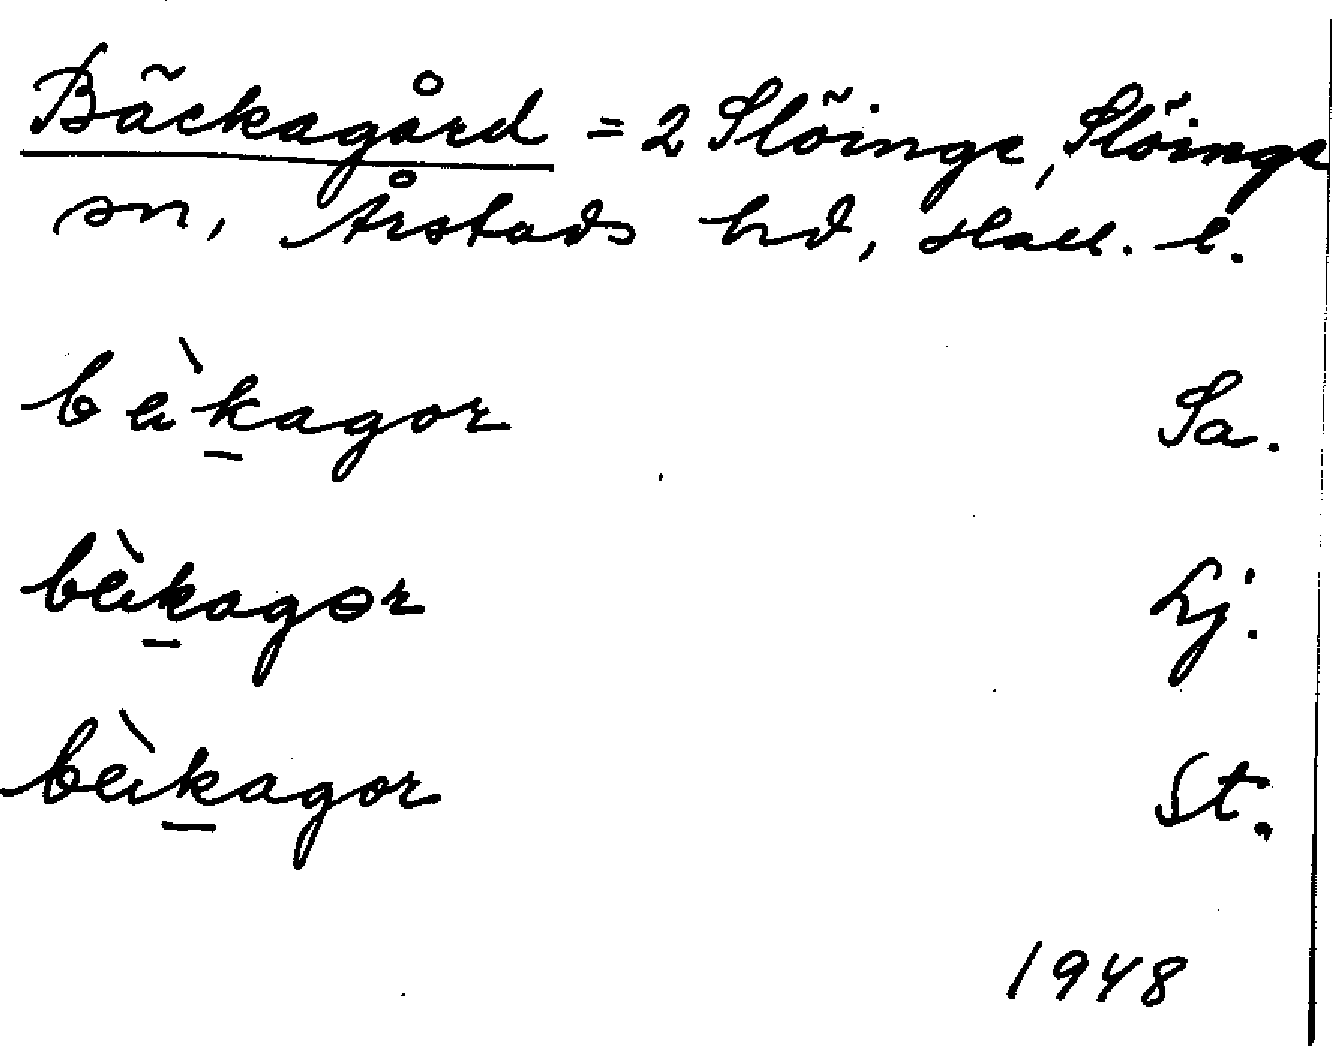 Bäckagård = 2 Slöinge, Slöinge
sn, Årstads hd, Hall. l.
bèkagor Sa.
bèkagɵr Lj.
bèkagor St.
1948